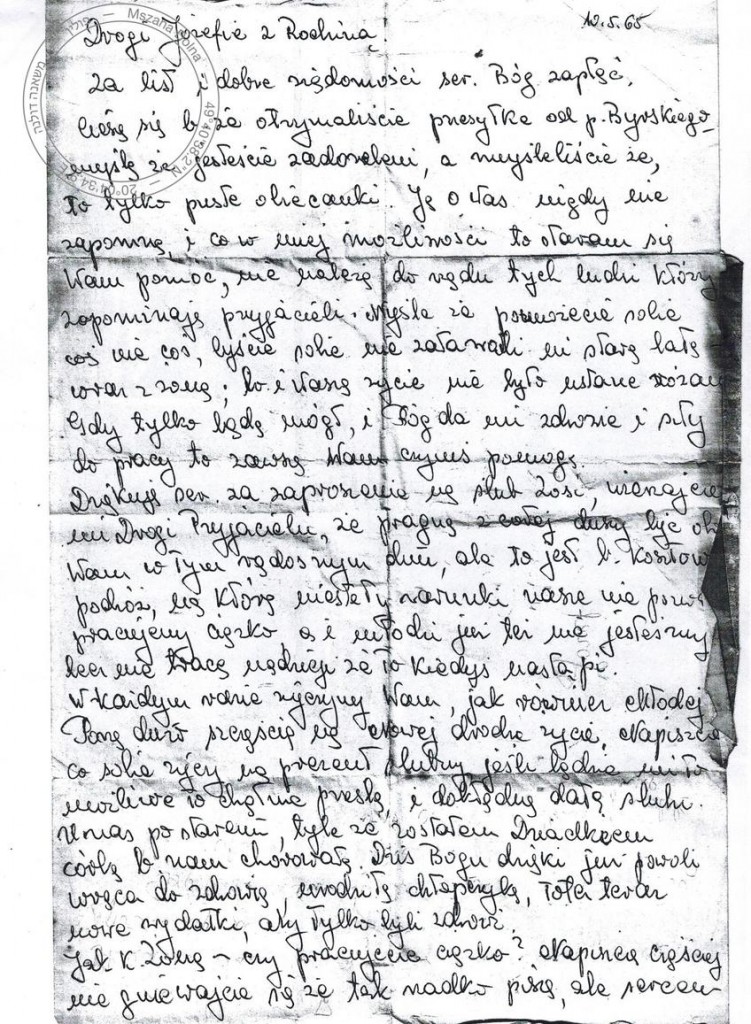 12.5.65
Drogi Józefie z Rodziną!
Za list i dobre wiadomości ser. Bóg zapłać,
cieszę się b. że otrzymaliście przesyłkę od p. Byrskiego
myślę że jesteście zadowoleni, a myśleliście że,
to tylko puste obiecanki. Ja o Was nigdy nie
zapomnę, i co w mojej możliwości to staram się
Wam pomoc, nie należę do rzędu tych ludzi którzy
zapominają przyjacieli. Myślę że pomożecie sobie
coś nie coś, byście sobie nie
wraz z żoną; bo i Wasze życie nie było usłane różami
Gdy tylko będę mógł, i Bóg da mi zdrowie i siły
do pracy to zawsze Wam czymś pomogę.
Dziękuję ser. za zaproszenie na ślub Zosi,
mi Drogi Przyjacielu, że pragnę z całej duszy być
Wam w tym radosnym dniu, ale to jest b. kosztowna
podróż, na którą niestety warunki nasze nie
pracujemy ciężko, a i młodzi już też nie jesteśmy
lecz nie tracę nadzieji że to kiedyś nastąpi.
W każdym razie życzymy Wam, jak również Młodej
Parze dużo szczęścia na nowej drodze życia. Napiszcie
co sobie życzy na prezent ślubny, jeśli będzie mi to
możliwe to chętnie prześlę, i dokładną datę ślubu.
U nas po staremu, tyle że zostałem Dziadkiem
córka b. nam chorowała. Dziś Bogu dzięki już powoli
wraca do zdrowia, urodziła chłopczyka, teraz
nowe wydatki, aby tylko byli zdrowi.
Jak K. Żona – czy pracujecie ciężko? Napiszcie częściej
nie gniewajcie się że tak rzadko piszę, ale sercem
Mszana Dolna
משאנה דולנה
49°40'38.2"N